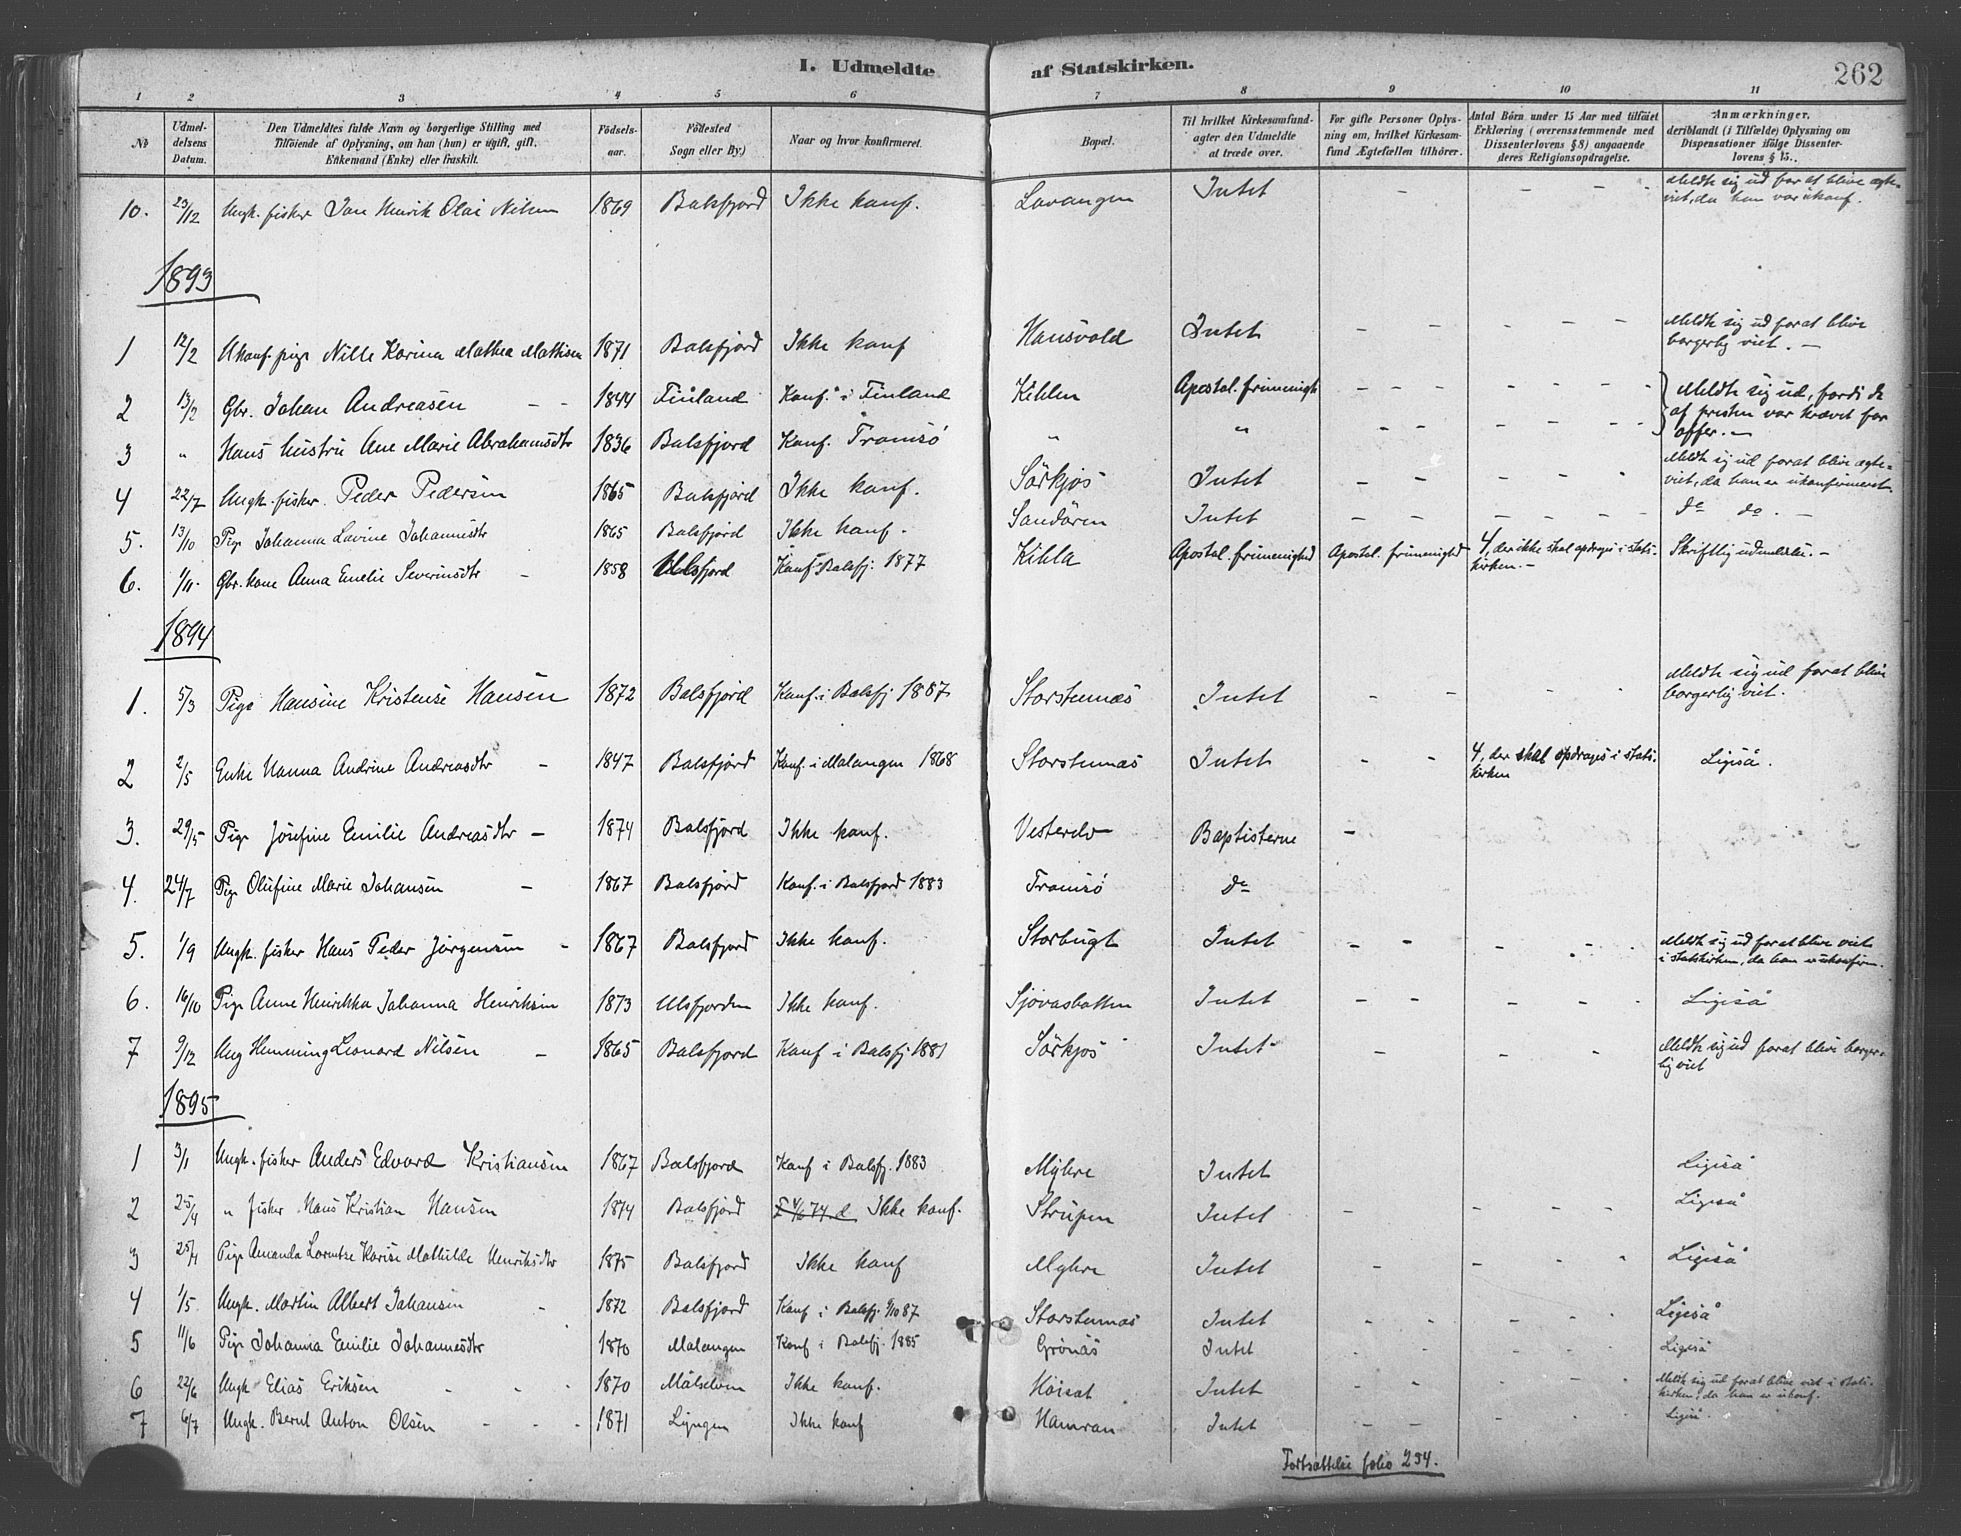 I. Udmeldte af Statskirken.
262
1 2 3 4 5 6 7 8 9 10 11
№ | Udmeldelsens Datum. | Den Udmeldtes fulde Navn og borgerlige Stilling med Tilföiende af Oplysning, om han (hun) er ugift, gift, Enkemand (Enke) eller fraskilt. | Födselsaar. | Födested Sogn eller By.) | Naar og hvor konfirmeret. | Bopæl. | Til hvilket Kirkesamfund agter den Udmeldte at træde over. | For gifte Personer Oplysning om, hvilket Kirkesamfund Ægtefællen tilhörer. | Antal Börn under 15 Aar med tilföiet Erklæring (overensstemmende med Dissenterlovens § 8) angaaende deres Religionsopdragelse. | Anmærkninger, deriblandt (i Tilfælde) Oplysning om Dispensationer ifölge Dissenterlovens § 15.
10. 23/12 Ungk. fisker Jan Henrik Olai Nilsen 1869 Balsfjord Ikke konf. Lavangen Intet - - - - Meldte sig ud for at blive ægteviet, da han var ukonf.
1893
1 12/2 Ukonf. pige Nille Karina Mathea Mathisen 1871 Balsfjord Ikke konf Hansvold Intet - - - - - Meldte sig ud for at blive borgerlig viet. -
2 13/2 Gbr. Johan Andreasen - - 1844 Finland Konf. i Finland Kiblen Apostol. frimenigh - - - - - - Meldte sig ud, fordi de af presten var krævet for offer. -
3 " Hans hustru Ane Marie Abrahamsdtr 1836 Balsfjord Konf. Tromsö " " - - - - -
4 22/7 Ungk. fisker. Peder Pedersen 1865 Balsfjord Ikke konf. Sörkjos Intet - - - - - Meldte sig ud for at blive ægteviet, da han er ukonfirmeret.
5. 13/10 Pige Johanna Lovine Johannesdtr 1865 Balsfjord Ikke konf. Sandören Intet - - - - - do do. -
6. 1/11. Gbr. kone Anna Emelie Severinsdtr - 1858 Ulsfjord Konf. Balsfj. 1877 Kibla Apostol. frimenighed Apostol. frimenighed 4, der ikke skal opdrages i statskirken. - Skriftlig udmeldelse. -
1894
1. 5/3 Pige Hansine Kristense Hansen 1872 Balsfjord Konf. i Balsfj 1887 Storstennæs Intet - - - - Meldte sig ud for at blive borgerlig viet.
2 2/5 Enke Hanna Andrine Andreasdtr - 1847 Balsfjord Konf. i Malangen 1868 Storstennæs Intet - - 4, der skal opdrages i statskirken Ligeså.
3. 29/5 Pige Josefine Emilie Andreasdtr - 1874 Balsfjord Ikke konf. Vesterelv Baptisterne -
4. 24/7 Pige Olufine Marie Johansen - 1867 Balsfjord Konf. i Balsfjord 1883 Tromsö do
5. 1/9 Ungk. fisker Hans Peder Jörgensen - 1867 Balsfjord Ikke konf. Storbugt Intet - - - - - Meldte sig ud for at blive viet i statskirken, da han er ukonfirm.
6. 16/10 Pige Anne Henrikka Johanna Henriksen 1873 Ulsfjorden Ikke konf. Sjövasbotten Intet - - - - - Ligeså
7 9/12 Ung Hemming Leonard Nilsen - 1865 Balsfjord Konf i Balsfj 1881 Sörkjos Intet - - - Meldte sig ud for at blive borgerlig viet
1895
1 3/1 Ungk. fisker Anders Edvard Kristiansen 1867 Balsfjord Konf i Balsfj. 1883 Myhre Intet Ligeså
2 25/4 " fisker Hans Kristian Hansen 1874 Balsfjord Ikke konf. Strupen Intet - - - - Ligeså
3 25/4 Pige Amanda Lorentze Karise Mathilde Henriksdtr 1875 Balsfjord Ikke konf Myhre Intet - - - - Ligeså
4 1/5 Ungk. Martin Albert Johansen - 1872 Balsfjord Konf i Balsfj. 9/10 87 Storstennæs Intet - - - - - Ligeså
5 11/6 Pige Johanna Emilie Johannesdtr 1870 Malangen Konf i Balsfj. 1885 Grönås Intet - - - - - Ligeså
6 22/6 Ungk Elias Eriksen - - - 1870 Målselven Ikke konf. Intet - - - - - Meldte sig ud for at blive viet i statskirken, da han er ukonf.
7 6/7 Ungk. Bernt Anton Olsen - - - 1871 Lyngen Ikke konf Hamran Intet - - - - - Ligeså.
Fortsættelse folio 234.